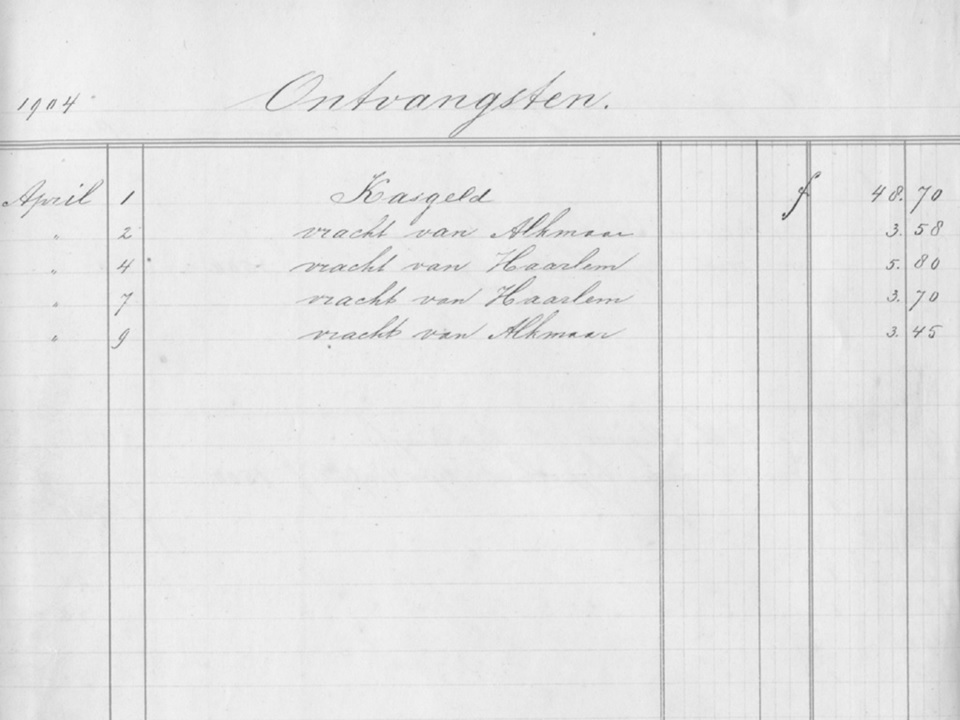 1904 Ontvangsten.
April 1 Kasgeld f 48.70
" 2 vracht van Alkmaar 3.58
" 4 vracht van Haarlem 5.80
" 7 vracht van Haarlem 3.70
" 9 vracht van Alkmaar 3.45